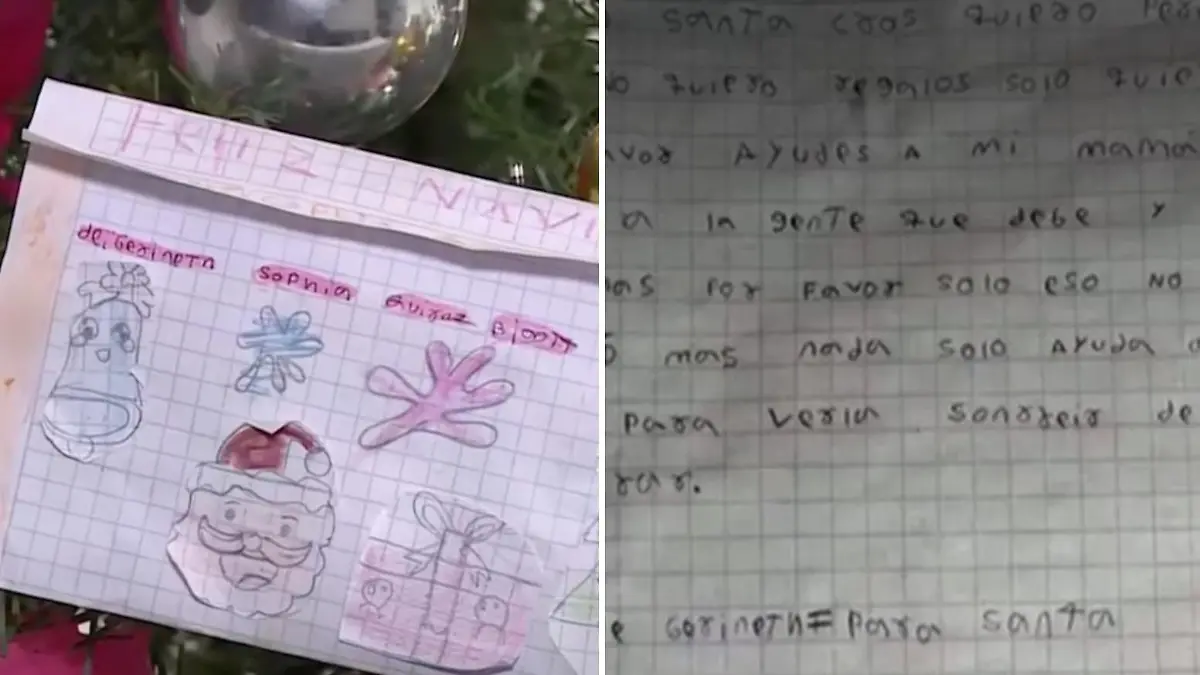 FELIZ NAVI
de, Gerineth Sophia Quiroz
SANTA CROS QUIERO PER
O QUIERO regalos solo QUIE
vor AYUDES A mi mama
a la gente que debe y
as Por Favor Solo eso NO
mas nada solo AYUDA a
para verla sonrreir de
rar.
e Gerineth = para Santa